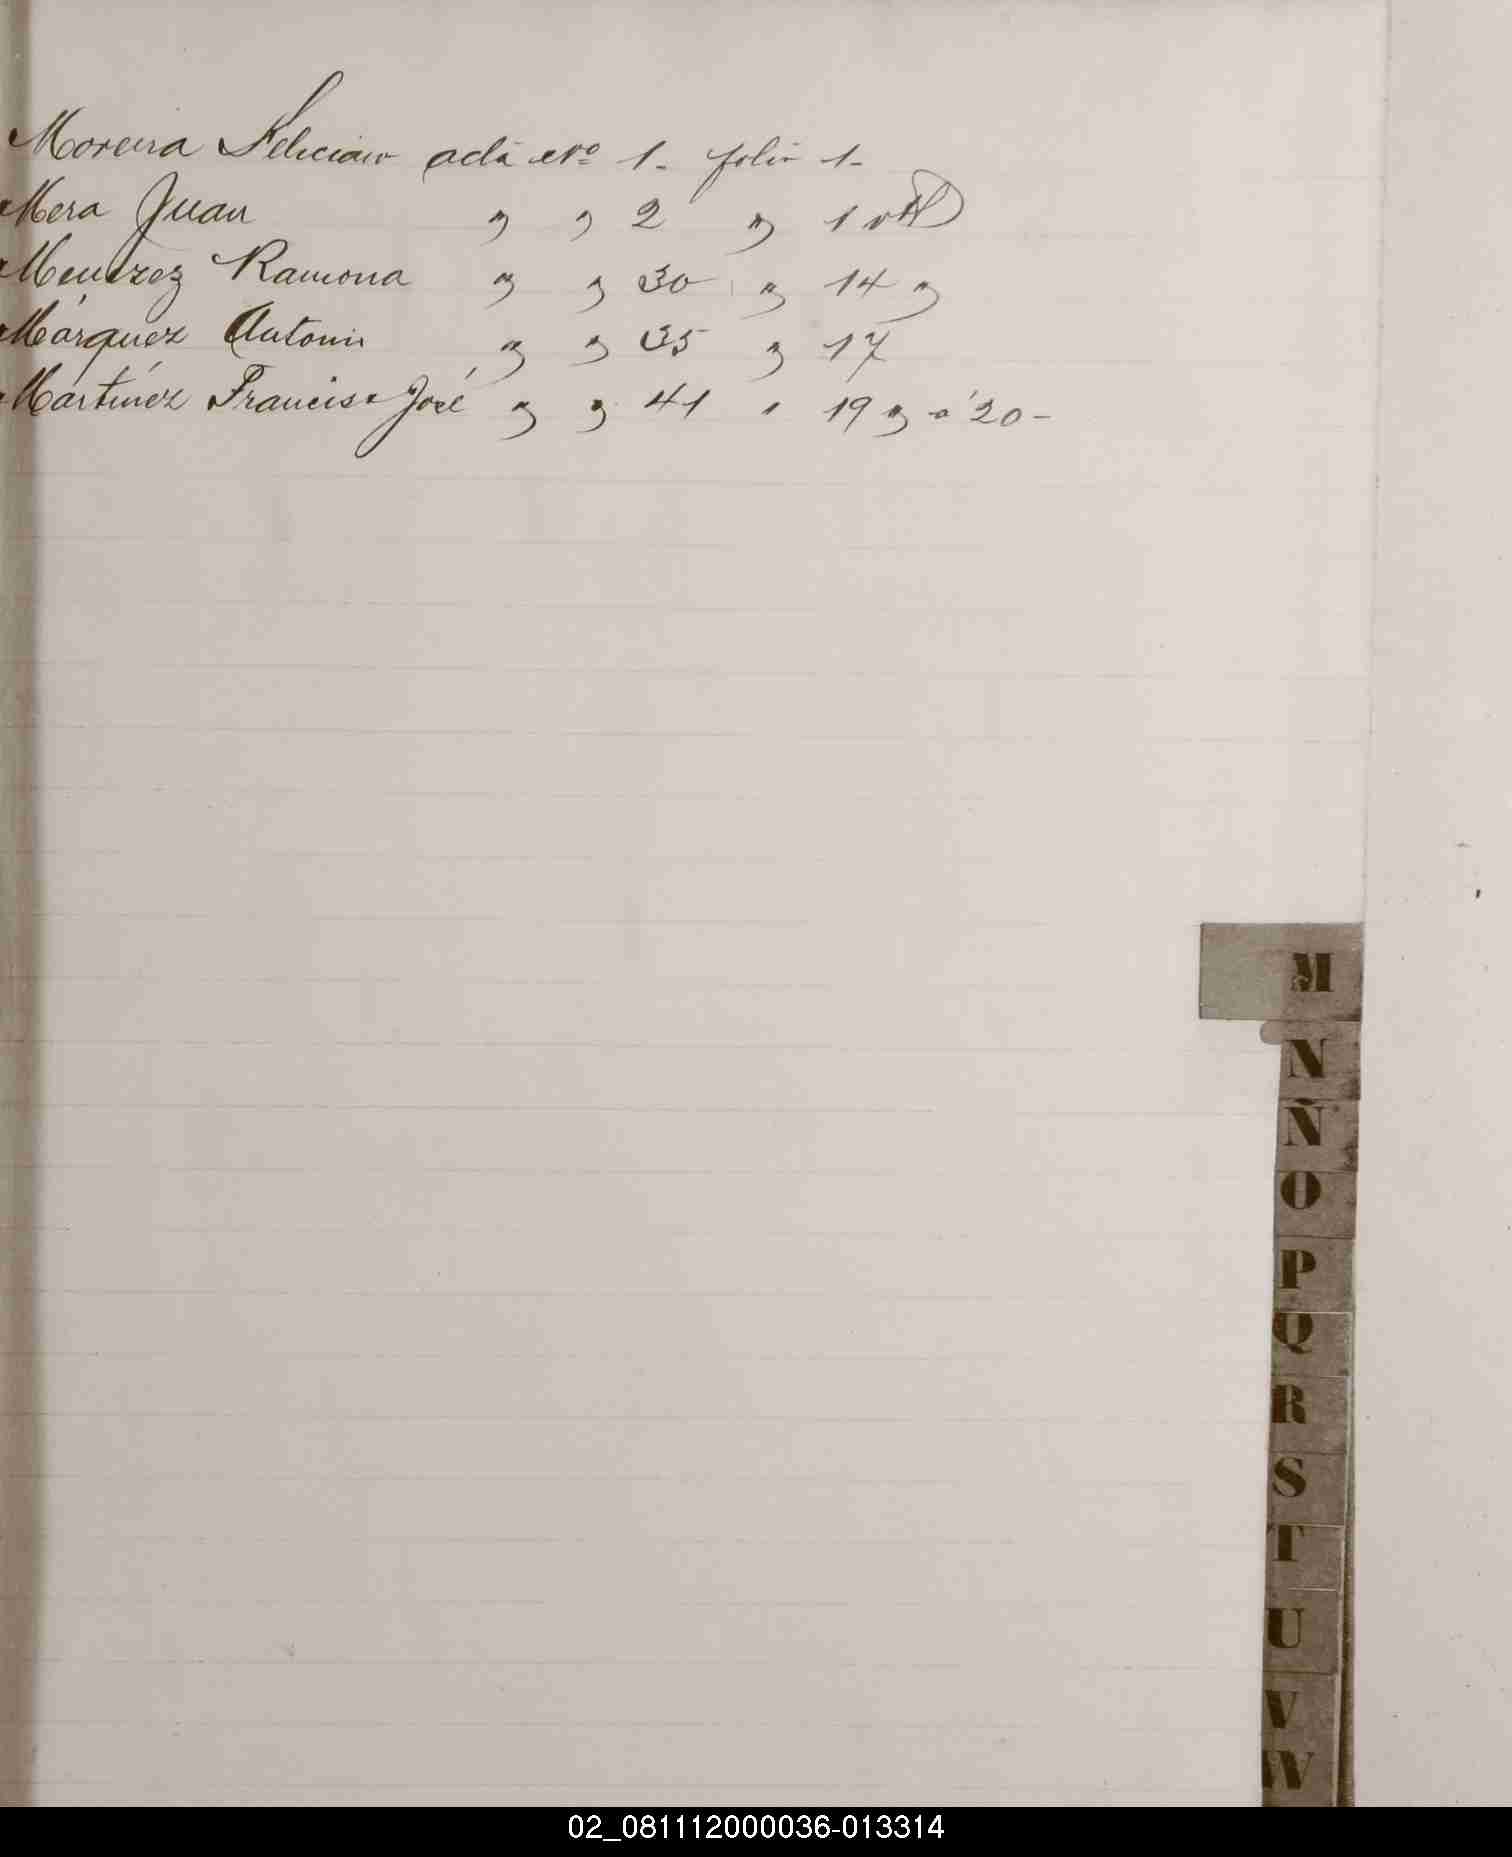 Moreira Feliciano acta Nº 1- folio 1-
Mera Juan " " 2 " 1 vto
Menezez Ramona " " 30 " 14 "
Márquez Antonio " " 35 " 17
Martínez Francisco José " " 41 " 19 " a 20-
M
N
Ñ
O
P
Q
R
S
T
U
V
W
02_081112000036-013314